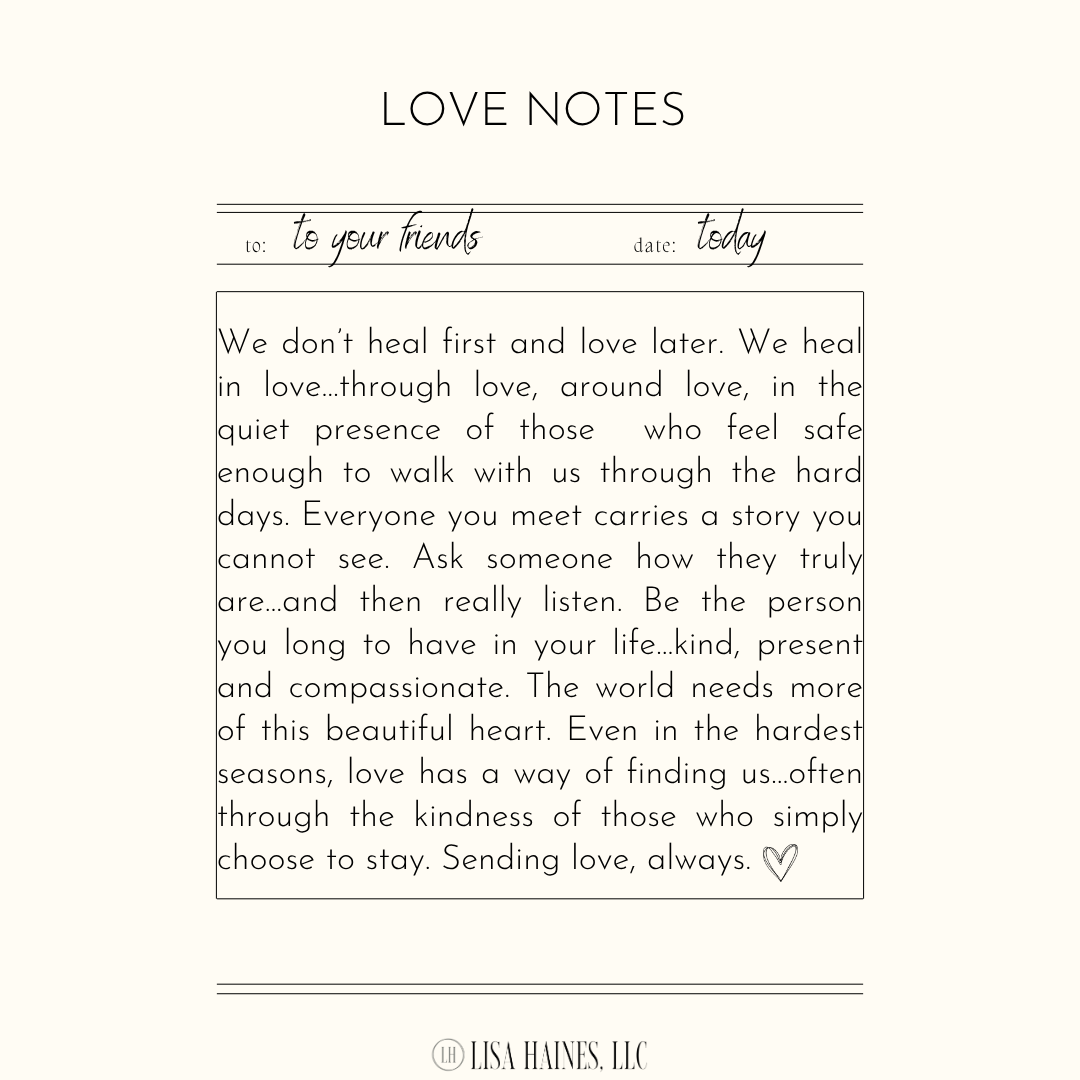 LOVE NOTES
to: to your friends date: today
We don't heal first and love later. We heal
in love...through love, around love, in the
quiet presence of those who feel safe
enough to walk with us through the hard
days. Everyone you meet carries a story you
cannot see. Ask someone how they truly
are...and then really listen. Be the person
you long to have in your life...kind, present
and compassionate. The world needs more
of this beautiful heart. Even in the hardest
seasons, love has a way of finding us...often
through the kindness of those who simply
choose to stay. Sending love, always.
LH LISA HAINES, LLC